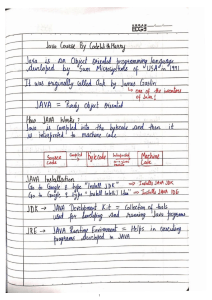 Java Course By CodeWithHarry
Java is an Object oriented programming language
developed by "Sun Microsystems of "USA" in 1991
It was originally called Oak by James Goslin
→ one of the inventors
of Java!
JAVA = Purely Object Oriented
How JAVA Works?
Java is compiled into the bytecode and then it
is interpreted to machine code
Source Code
Compiled
bytecode
Interpreted
Machine Code
JAVA Installation
Go to Google & type "Install JDK" → Installs JAVA JDK
Go to Google & type "Install IntelliJ Idea" → Installs JAVA IDE
JDK → JAVA Development Kit = Collection of tools
used for developing and running Java programs
JRE → JAVA Runtime Environment = Helps in executing
programs developed in JAVA